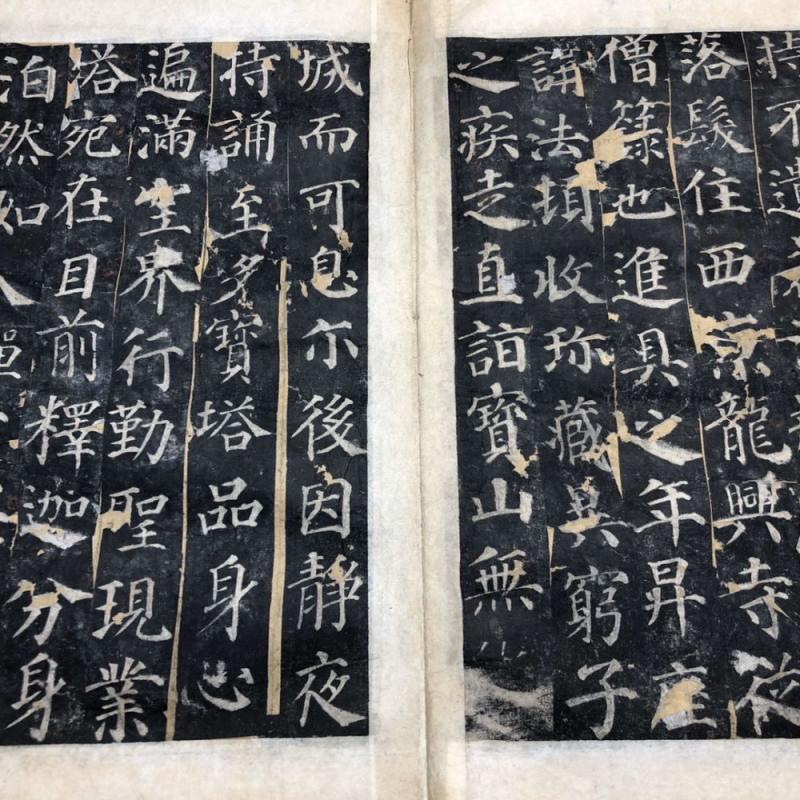 持不遺
落髮住西京龍興寺從
僧籙也進具之年昇座
講法頓收珍藏異窮子
之疾走直詣寶山無
城而可息尔後因靜夜
持誦至多寶塔品身心
遍滿空界行勤聖現業
塔宛在目前釋迦分身
泊然如入